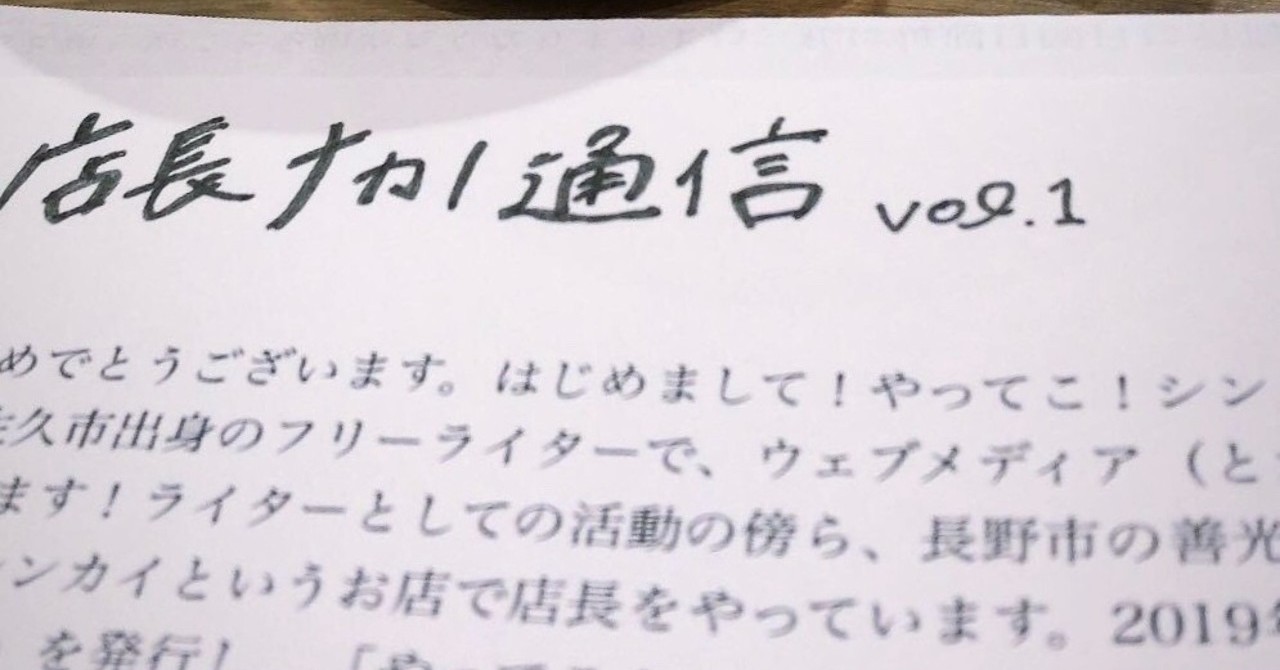 店長ナカノ通信 vol.1
めでとうございます。はじめまして！やってこ！シン
佐久市出身のフリーライターで、ウェブメディア（と
ます！ライターとしての活動の傍ら、長野市の善光
ンカイというお店で店長をやっています。2019年
を発行！